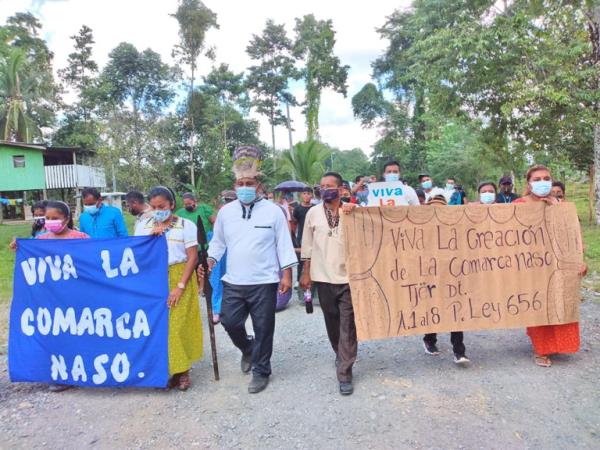 VIVA LA
COMARCA
NASO.
VIVA
LA
Viva La Creación
de La Comarca Naso
Tjër Di.
A.1 al 8 P. Ley 656